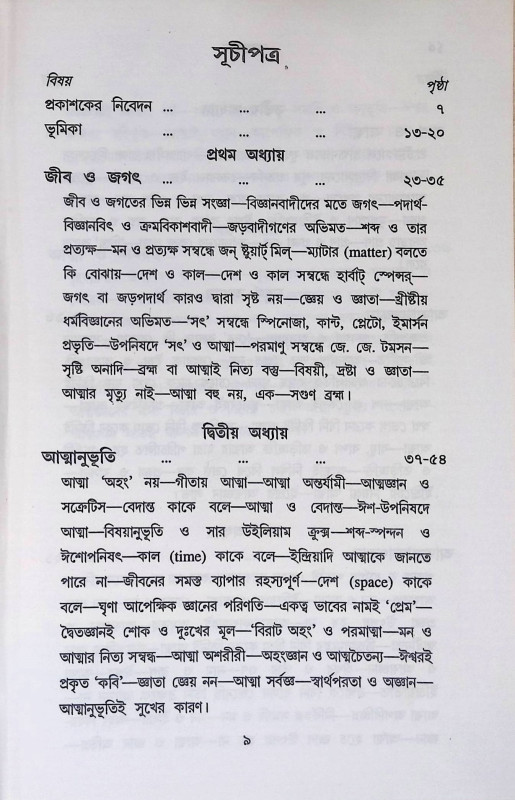 সূচীপত্র
বিষয় পৃষ্ঠা
প্রকাশকের নিবেদন ... ... ... ৭
ভূমিকা ... ... ... ১৩-২০
প্রথম অধ্যায়
জীব ও জগৎ ... ... ... ২৩-৩৫
জীব ও জগতের ভিন্ন ভিন্ন সংজ্ঞা—বিজ্ঞানবাদীদের মতে জগৎ—পদার্থ-
বিজ্ঞানবিৎ ও ক্রমবিকাশবাদী—জড়বাদীগণের অভিমত—শব্দ ও তার
প্রত্যক্ষ—মন ও প্রত্যক্ষ সম্বন্ধে জন্ ষ্টুয়ার্ট্ মিল্—ম্যাটার (matter) বলতে
কি বোঝায়—দেশ ও কাল—দেশ ও কাল সম্বন্ধে হার্বাট্ স্পেন্সর্—
জগৎ বা জড়পদার্থ কারও দ্বারা সৃষ্ট নয়—জ্ঞেয় ও জ্ঞাতা—খ্রীষ্টীয়
ধর্মবিজ্ঞানের অভিমত—‘সৎ’ সম্বন্ধে স্পিনোজা, কান্ট, প্লেটো, ইমার্সন
প্রভৃতি—উপনিষদে ‘সৎ’ ও আত্মা—পরমাণু সম্বন্ধে জে. জে. টমসন—
সৃষ্টি অনাদি—ব্রহ্ম বা আত্মাই নিত্য বস্তু—বিষয়ী, দ্রষ্টা ও জ্ঞাতা—
আত্মার মৃত্যু নাই—আত্মা বহু নয়, এক—সগুণ ব্রহ্ম।
দ্বিতীয় অধ্যায়
আত্মানুভূতি ... ... ... ৩৭-৫৪
আত্মা ‘অহং’ নয়—গীতায় আত্মা—আত্মা অন্তর্যামী—আত্মজ্ঞান ও
সক্রেটিস—বেদান্ত কাকে বলে—আত্মা ও বেদান্ত—ঈশ-উপনিষদে
আত্মা—বিষয়ানুভূতি ও সার উইলিয়াম ক্রুক্স—শব্দ-স্পন্দন ও
ঈশোপনিষৎ—কাল (time) কাকে বলে—ইন্দ্রিয়াদি আত্মাকে জানতে
পারে না—জীবনের সমস্ত ব্যাপার রহস্যপূর্ণ—দেশ (space) কাকে
বলে—ঘৃণা আপেক্ষিক জ্ঞানের পরিণতি—একত্ব ভাবের নামই ‘প্রেম’—
দ্বৈতজ্ঞানই শোক ও দুঃখের মূল—‘বিরাট অহং’ ও পরমাত্মা—মন ও
আত্মার নিত্য সম্বন্ধ—আত্মা অশরীরী—অহংজ্ঞান ও আত্মচৈতন্য—ঈশ্বরই
প্রকৃত ‘কবি’—জ্ঞাতা জ্ঞেয় নন—আত্মা সর্বজ্ঞ—স্বার্থপরতা ও অজ্ঞান—
আত্মানুভূতিই সুখের কারণ।
৯